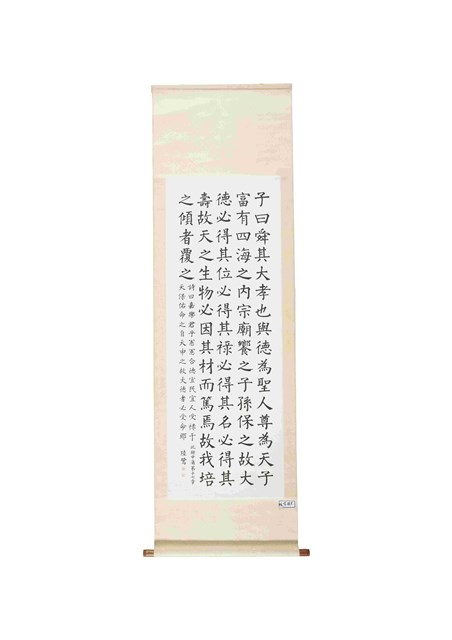 子曰舜其大孝也與德為聖人尊為天子
富有四海之內宗廟饗之子孫保之故大
德必得其位必得其祿必得其名必得其
壽故天之生物必因其材而篤焉故我培
之傾者覆之
詩曰嘉學君子憲憲合德宜民宜人受祿于
天保佑命之自天申之故大德者必受命
此錄中庸第十七章